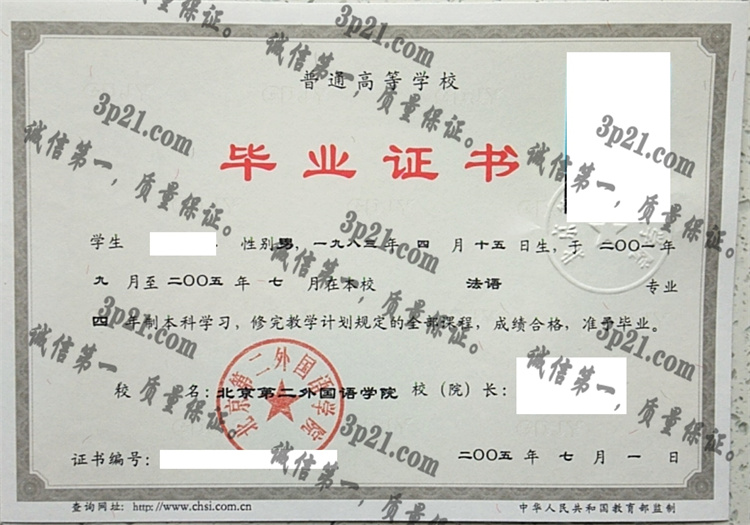 普通高等学校
毕业证书
学生 性别男，一九八三年 四 月 十五 日生，于 二〇〇一年
九 月至 二〇〇五 年 七 月在本校 法语 专业
四 年制本科学习，修完教学计划规定的全部课程，成绩合格，准予毕业。
校 名：北京第二外国语学院 校（院）长：
北京第二外国语学院
证书编号： 二〇〇五 年 七 月 一 日
查询网址：http://www.chsi.com.cn 中华人民共和国教育部监制
3p21.com
诚信第一，质量保证。
3p21.com
诚信第一，质量保证。
3p21.com
诚信第一，质量保证。
3p21.com
诚信第一，质量保证。
3p21.com
诚信第一，质量保证。
3p21.com
诚信第一，质量保证。
3p21.com
诚信第一，质量保证。